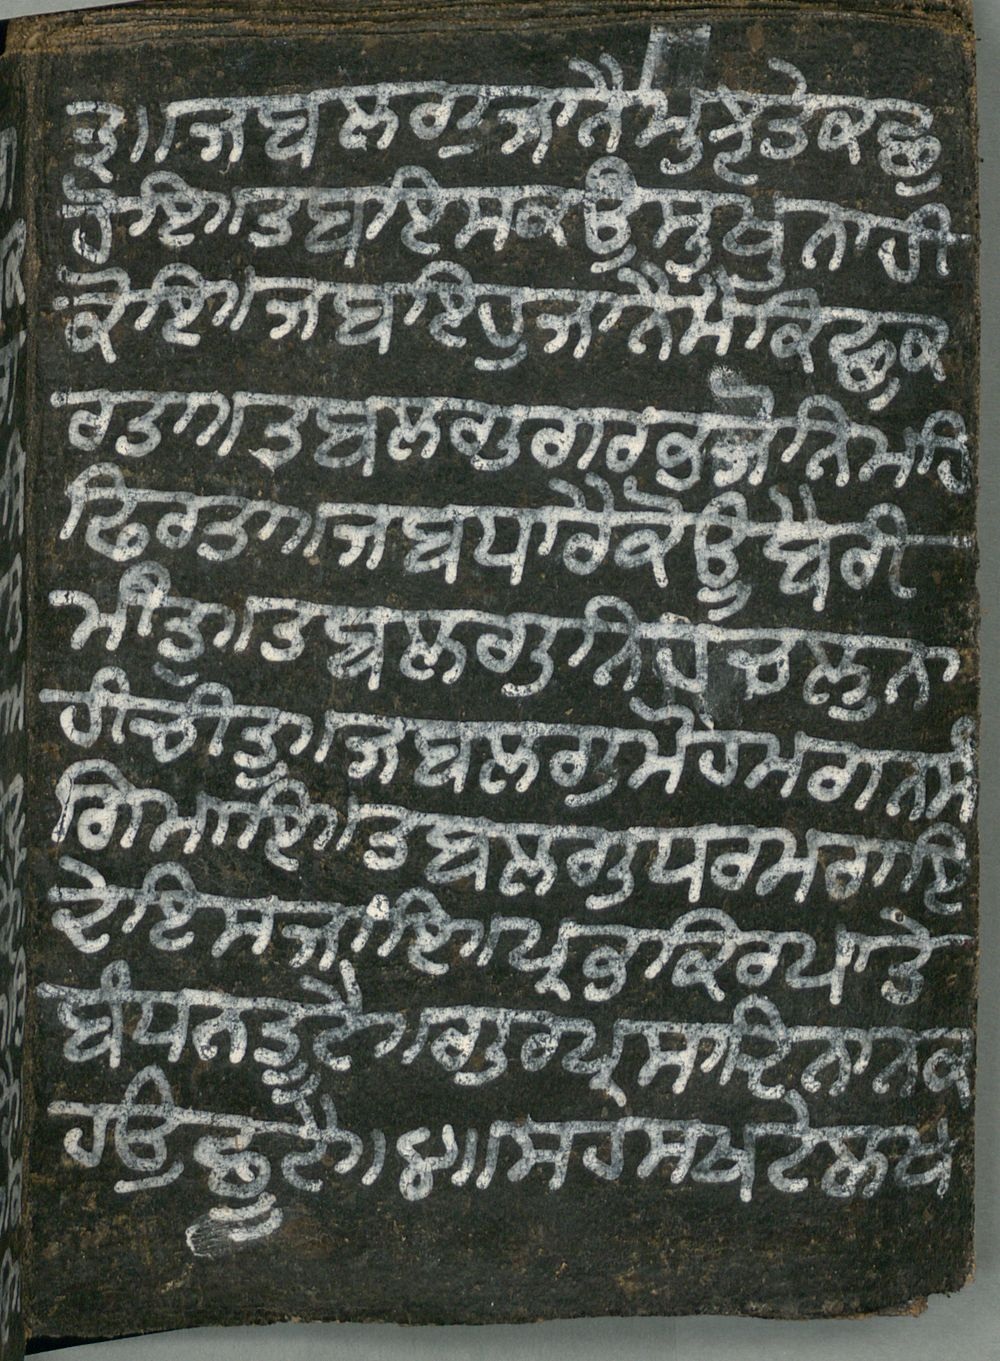 ੩॥ਜਬ ਲਗੁ ਜਾਨੈ ਮੁਝ ਤੇ ਕਛੁ
ਹੋਇ॥ਤਬ ਇਸ ਕਉ ਸੁਖੁ ਨਾਹੀ
ਕੋਇ॥ਜਬ ਇਹੁ ਜਾਨੈ ਮੈ ਕਿਛੁ ਕ
ਰਤਾ॥ਤਬ ਲਗੁ ਗਰਭ ਜੋਨਿ ਮਹਿ
ਫਿਰਤਾ॥ਜਬ ਧਾਰੈ ਕੋਊ ਬੈਰੀ
ਮੀਤੁ॥ਤਬ ਲਗੁ ਨਿਹਚਲੁ ਨਾ
ਹੀ ਚੀਤੁ॥ਜਬ ਲਗੁ ਮੋਹ ਮਗਨ ਸੰ
ਗਿ ਮਾਇ॥ਤਬ ਲਗੁ ਧਰਮ ਰਾਇ
ਦੇਇ ਸਜਾਇ॥ਪ੍ਰਭ ਕਿਰਪਾ ਤੇ
ਬੰਧਨ ਤੂਟੈ॥ਗੁਰ ਪ੍ਰਸਾਦਿ ਨਾਨਕ
ਹਉ ਛੂਟੈ॥੪॥ਸਹਸ ਖਟੇ ਲਖ